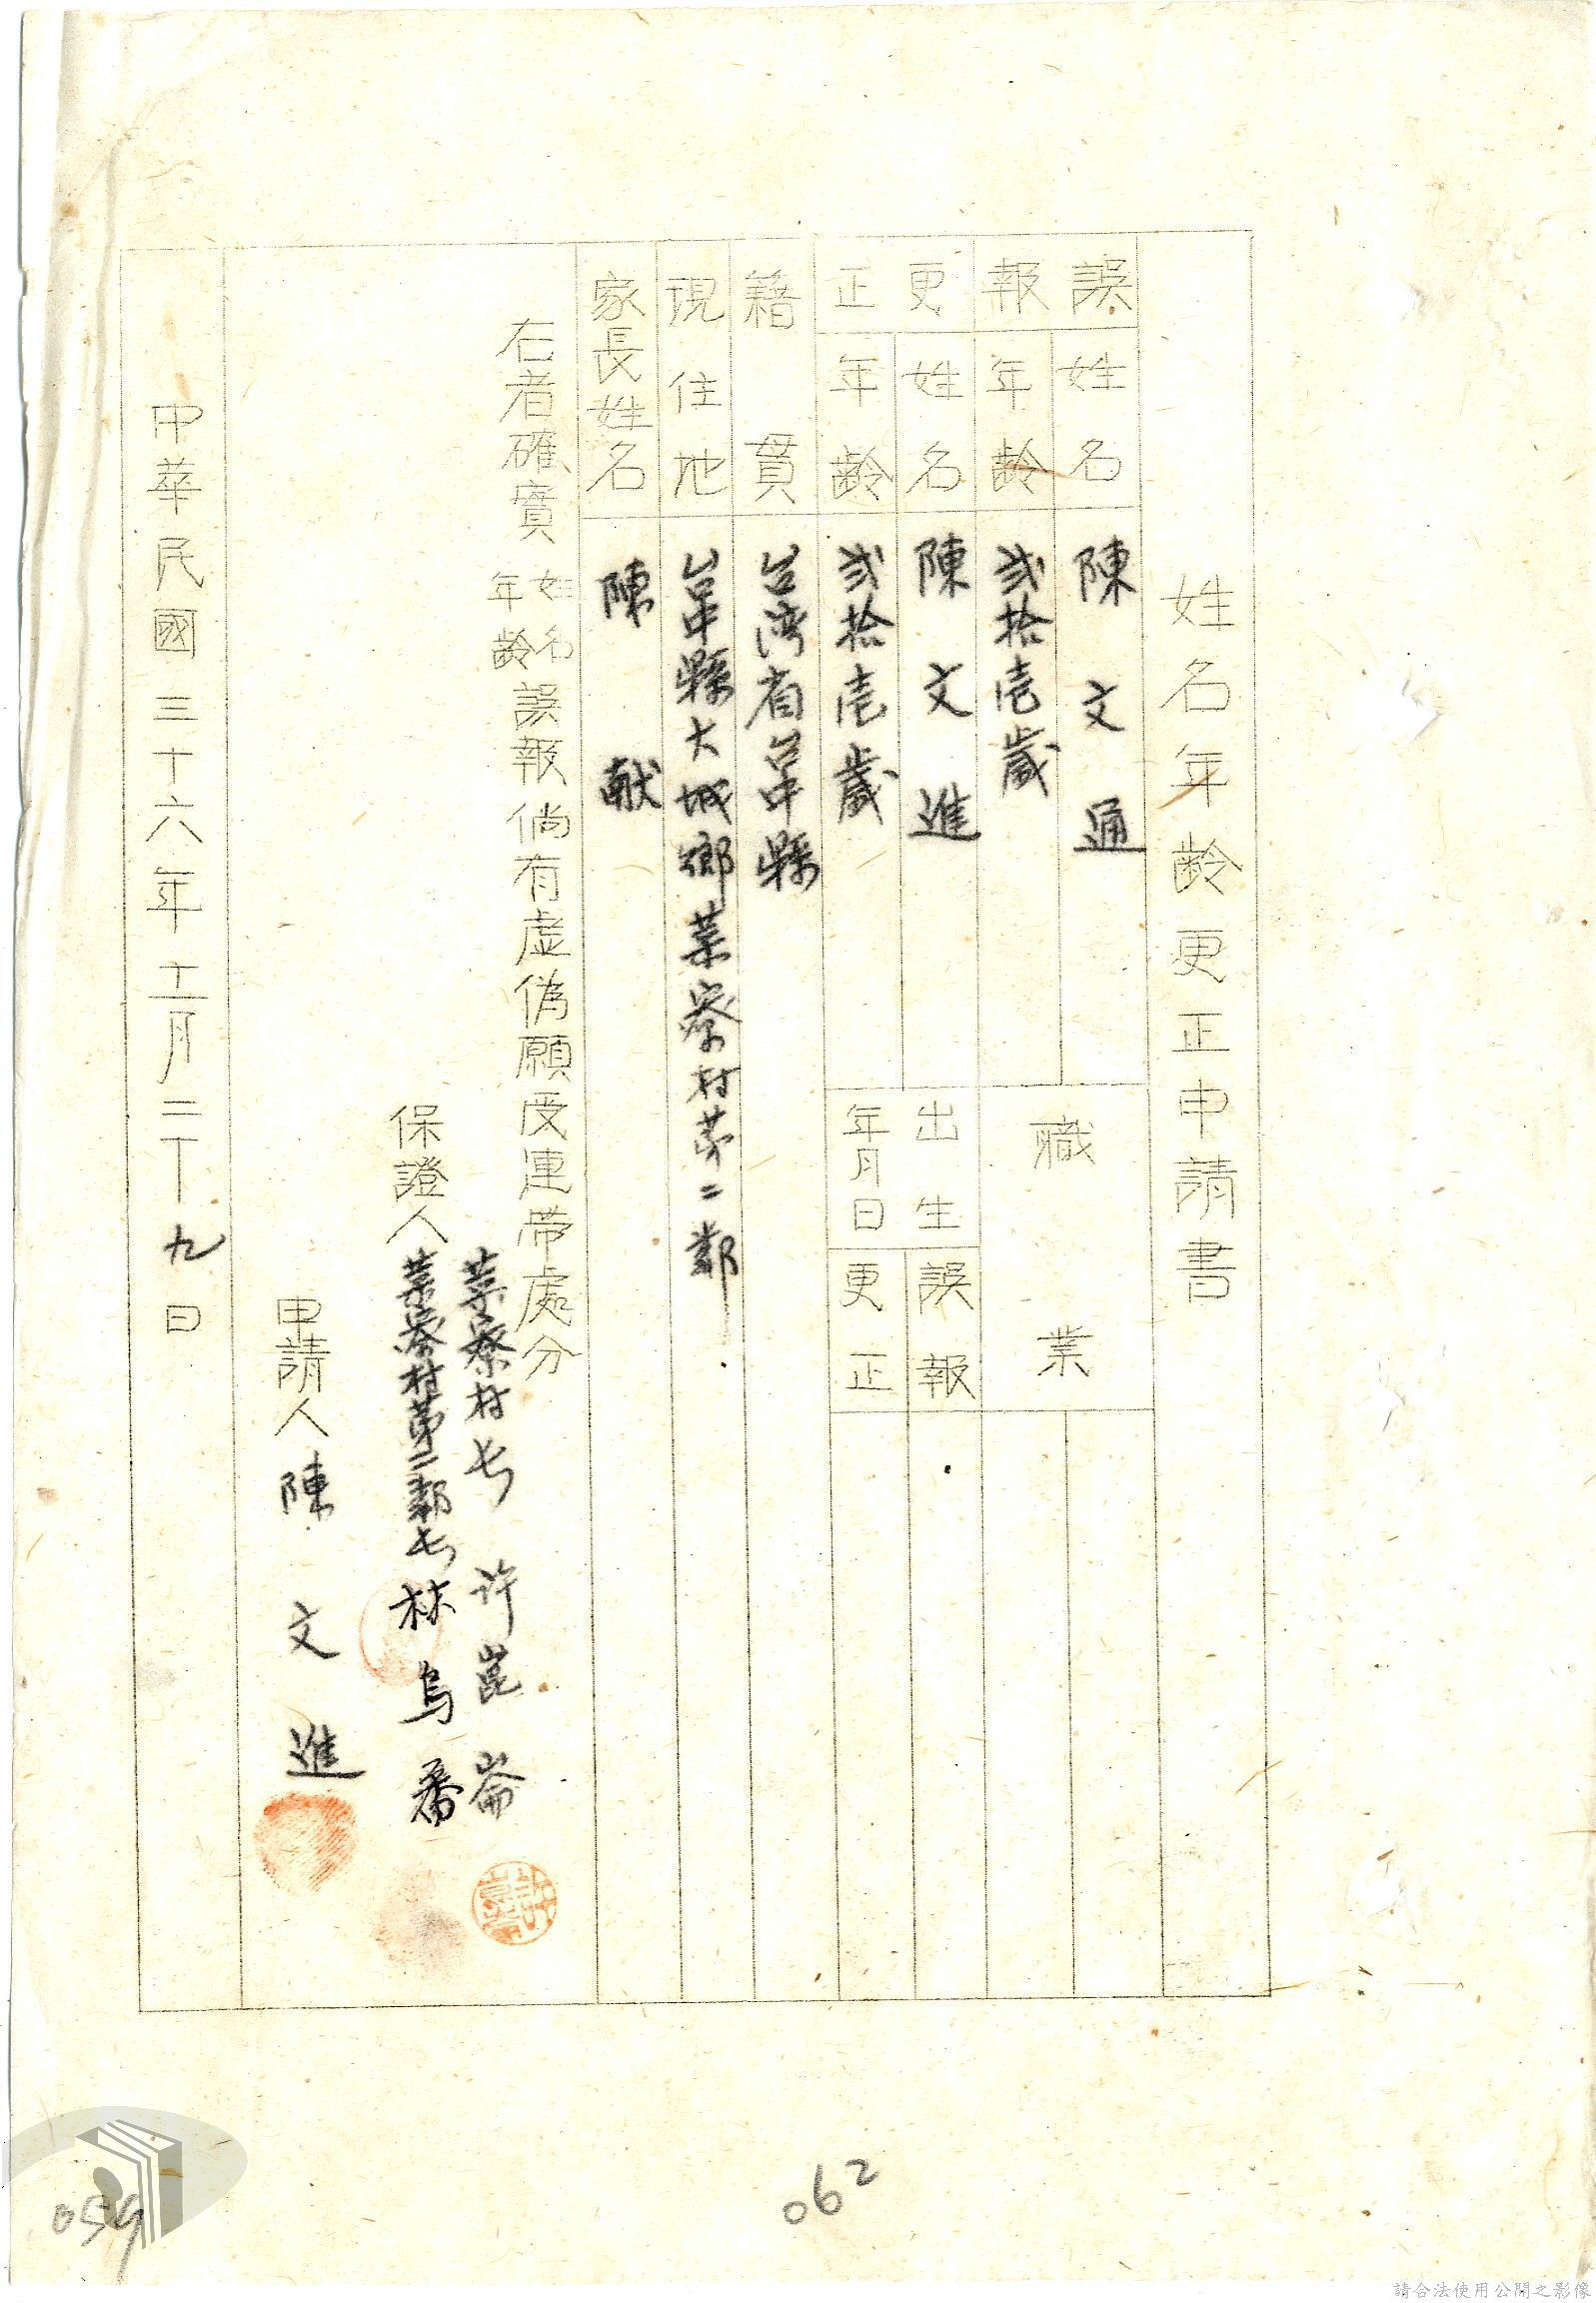 姓名年齡更正申請書
誤報
姓名
陳文通
年齡
弍拾壱歲
職業
更正
姓名
陳文進
年齡
弍拾壱歲
出生
年月日
誤報
更正
籍貫
台湾省台中縣
現住地
台中縣大城鄉菜寮村第二鄰
家長姓名
陳献
右者確實姓名年齡誤報倘有虛偽願受連帶處分
保證人
菜寮村長 许崑崙
菜寮村第二鄰長 林烏番
申請人 陳文進
中華民國三十六年十一月二十九日
062
059
請合法使用公開之影像